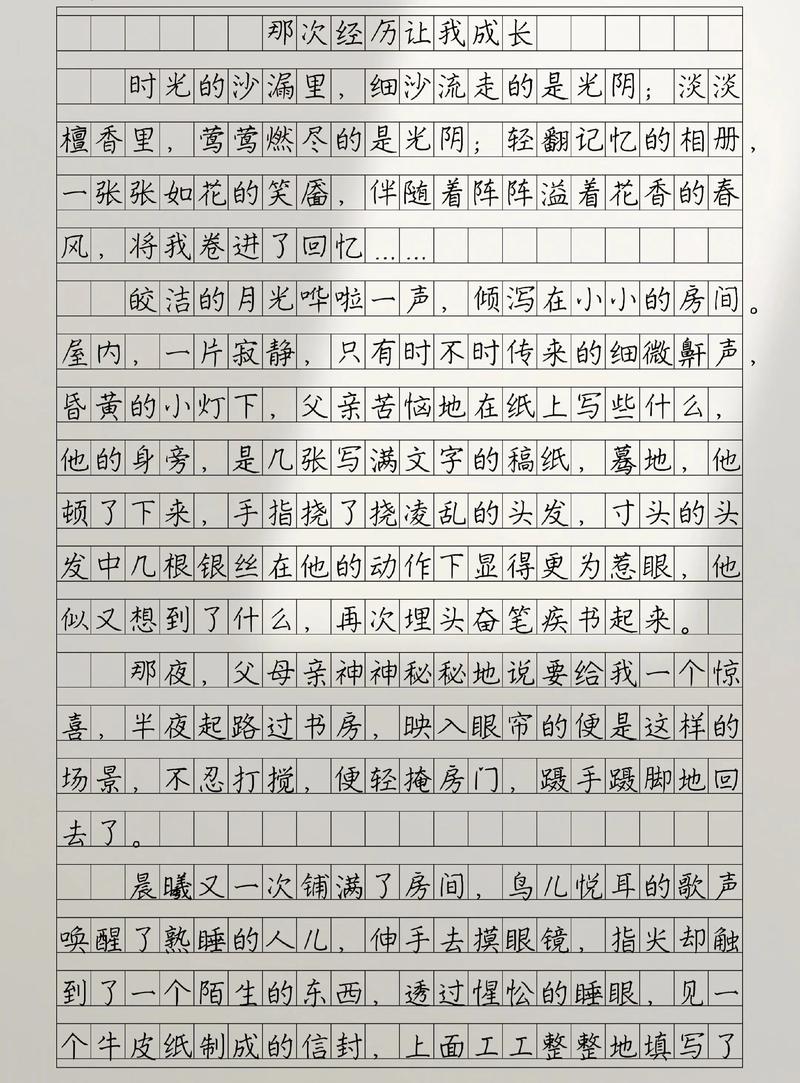 那次经历让我成长
时光的沙漏里，细沙流走的是光阴；淡淡
檀香里，莺莺燃尽的是光阴；轻翻记忆的相册，
一张张如花的笑靥，伴随着阵阵溢着花香的春
风，将我卷进了回忆……
皎洁的月光哗啦一声，倾泻在小小的房间。
屋内，一片寂静，只有时不时传来的细微鼾声，
昏黄的小灯下，父亲苦恼地在纸上写些什么，
他的身旁，是几张写满文字的稿纸，蓦地，他
顿了下来，手指挠了挠凌乱的头发，寸头的头
发中几根银丝在他的动作下显得更为惹眼，他
似又想到了什么，再次埋头奋笔疾书起来。
那夜，父母亲神神秘秘地说要给我一个惊
喜，半夜起路过书房，映入眼帘的便是这样的
场景，不忍打搅，便轻掩房门，蹑手蹑脚地回
去了。
晨曦又一次铺满了房间，鸟儿悦耳的歌声
唤醒了熟睡的人儿，伸手去摸眼镜，指尖却触
到了一个陌生的东西，透过惺忪的睡眼，见一
个牛皮纸制成的信封，上面工工整整地填写了